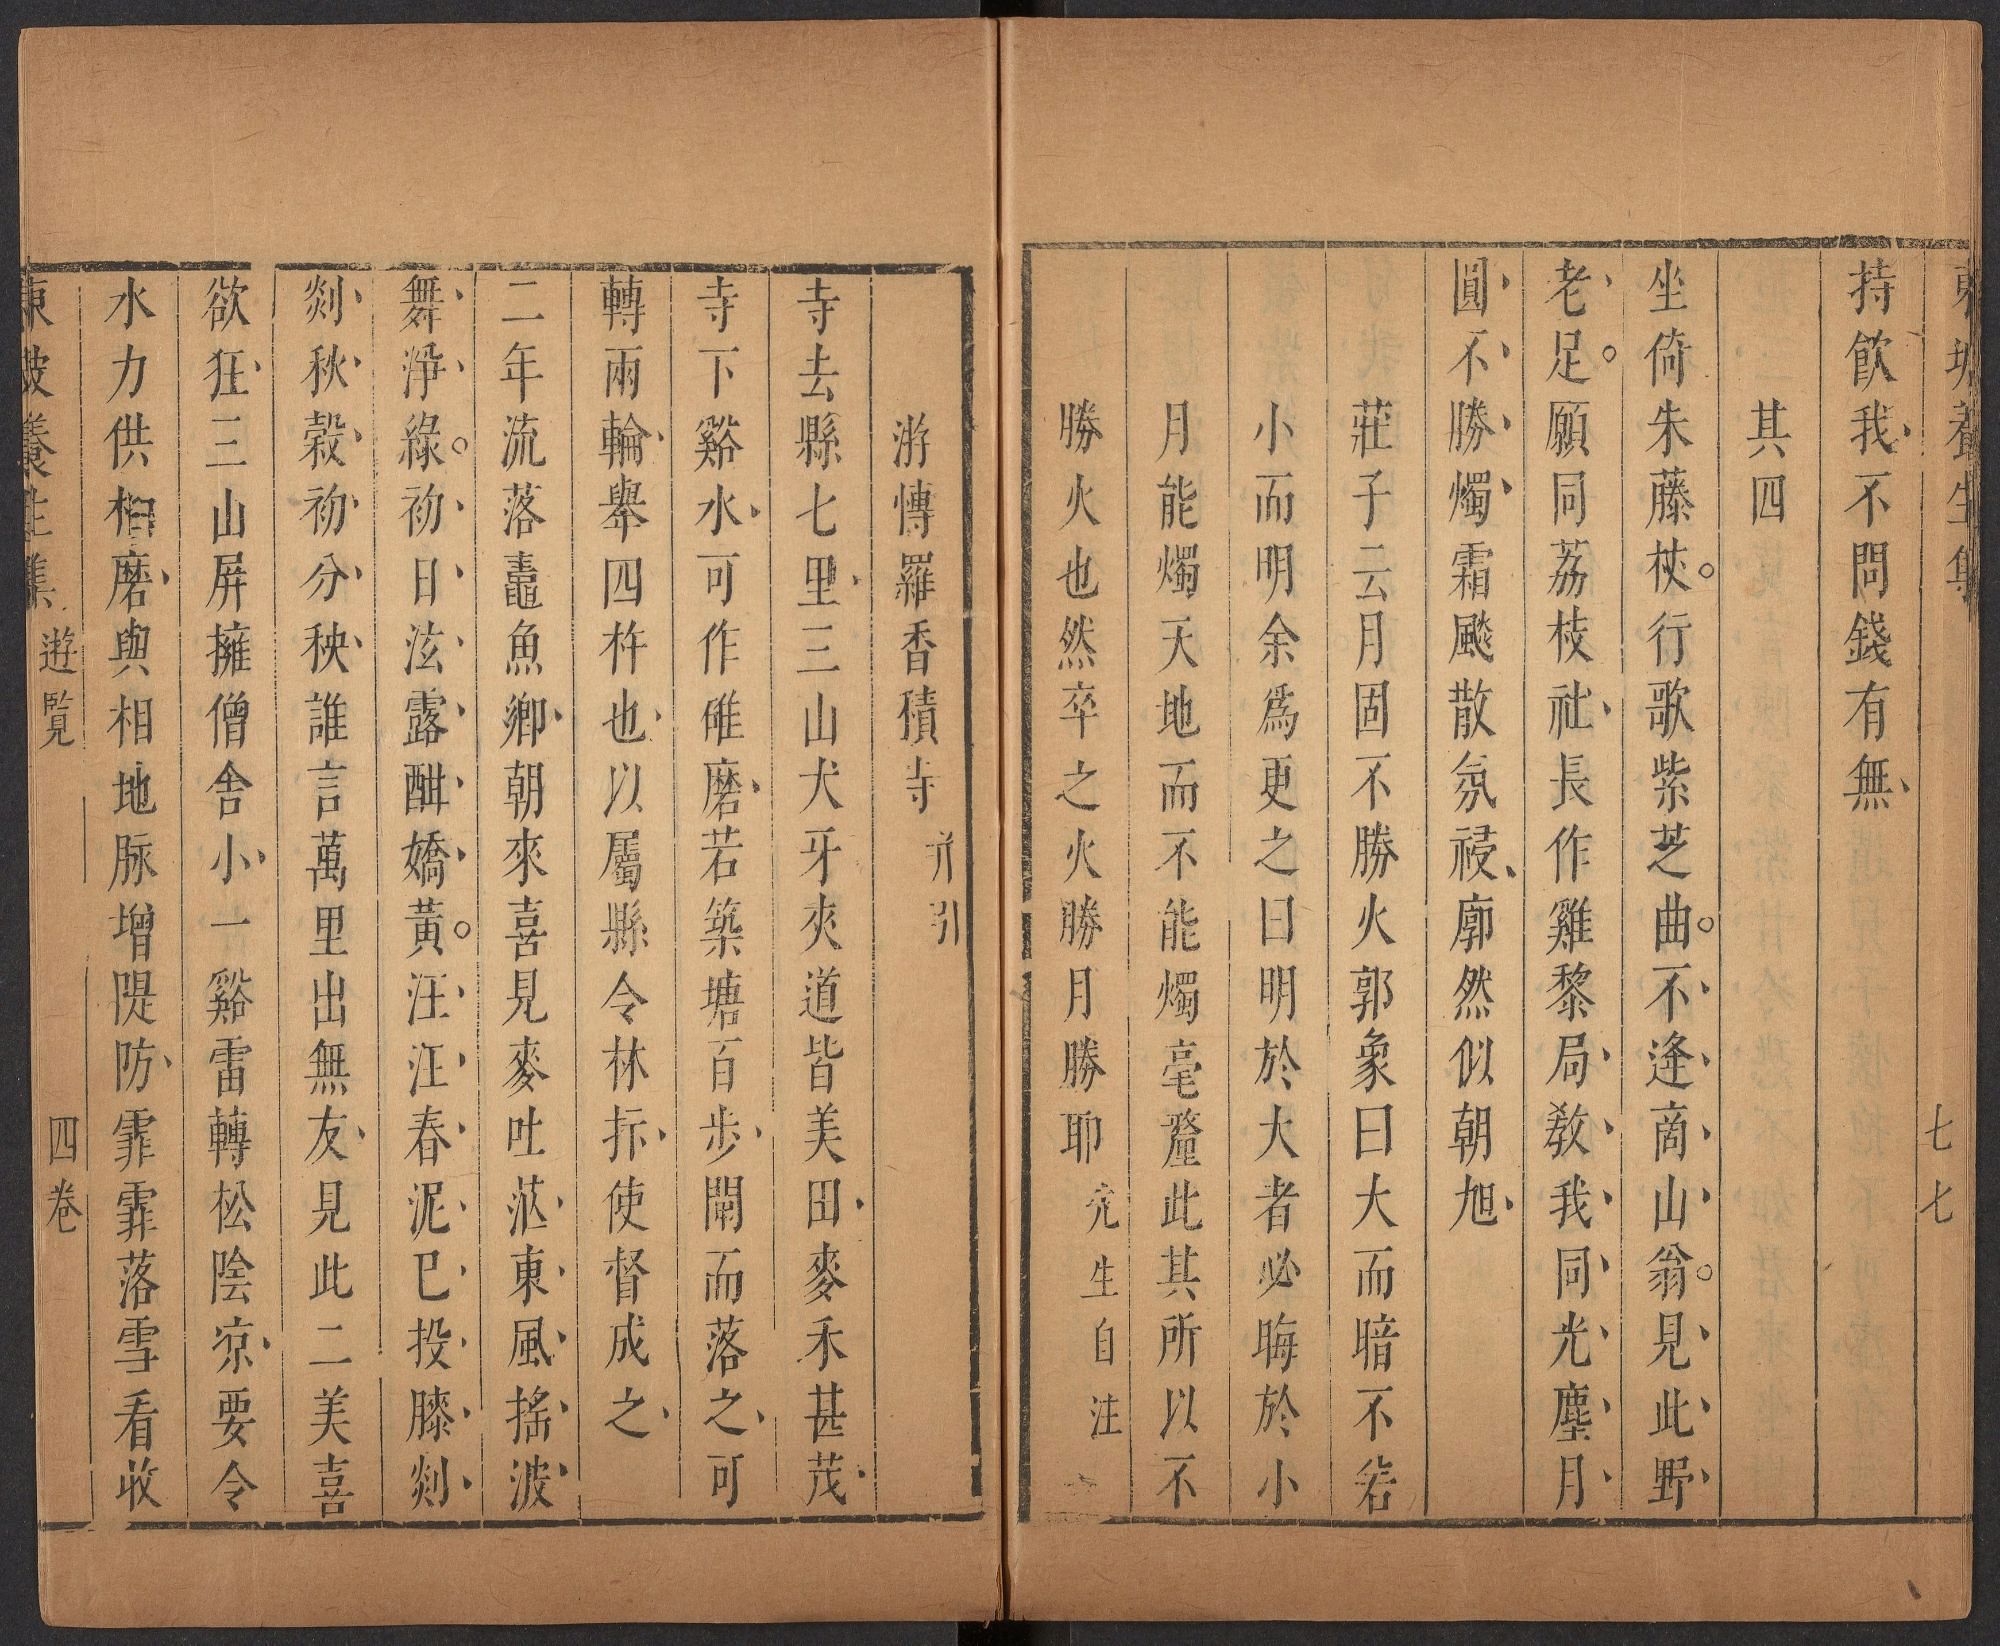 東坡養生集
七七
持飲我不問錢有無
其四
坐倚朱藤杖行歌紫芝曲不逢商山翁見此野
老足願同荔枝社長作雞黎局教我同光塵月
圓不勝燭霜飈散氛祲廓然似朝旭
莊子云月固不勝火郭象曰大而暗不若
小而明余爲更之曰明於大者必晦於小
月能燭天地而不能燭毫釐此其所以不
勝火也然卒之火勝月勝耶 先生自注
游慱羅香積寺 并引
寺去縣七里三山犬牙夾道皆美田麥禾甚茂
寺下谿水可作碓磨若築塘百步閘而落之可
轉兩輪舉四杵也以屬縣令林抃使督成之
二年流落鼃魚鄉朝來喜見麥吐芒東風搖波
舞淨綠初日泫露酣嬌黃汪汪春泥已投膝剡
剡秋穀初分秧誰言萬里出無友見此二美喜
欲狂三山屏擁僧舍小一谿雷轉松陰凉要令
水力供相磨與相地脉增隄防霏霏落雪看收
東坡養生集 遊覽 四卷